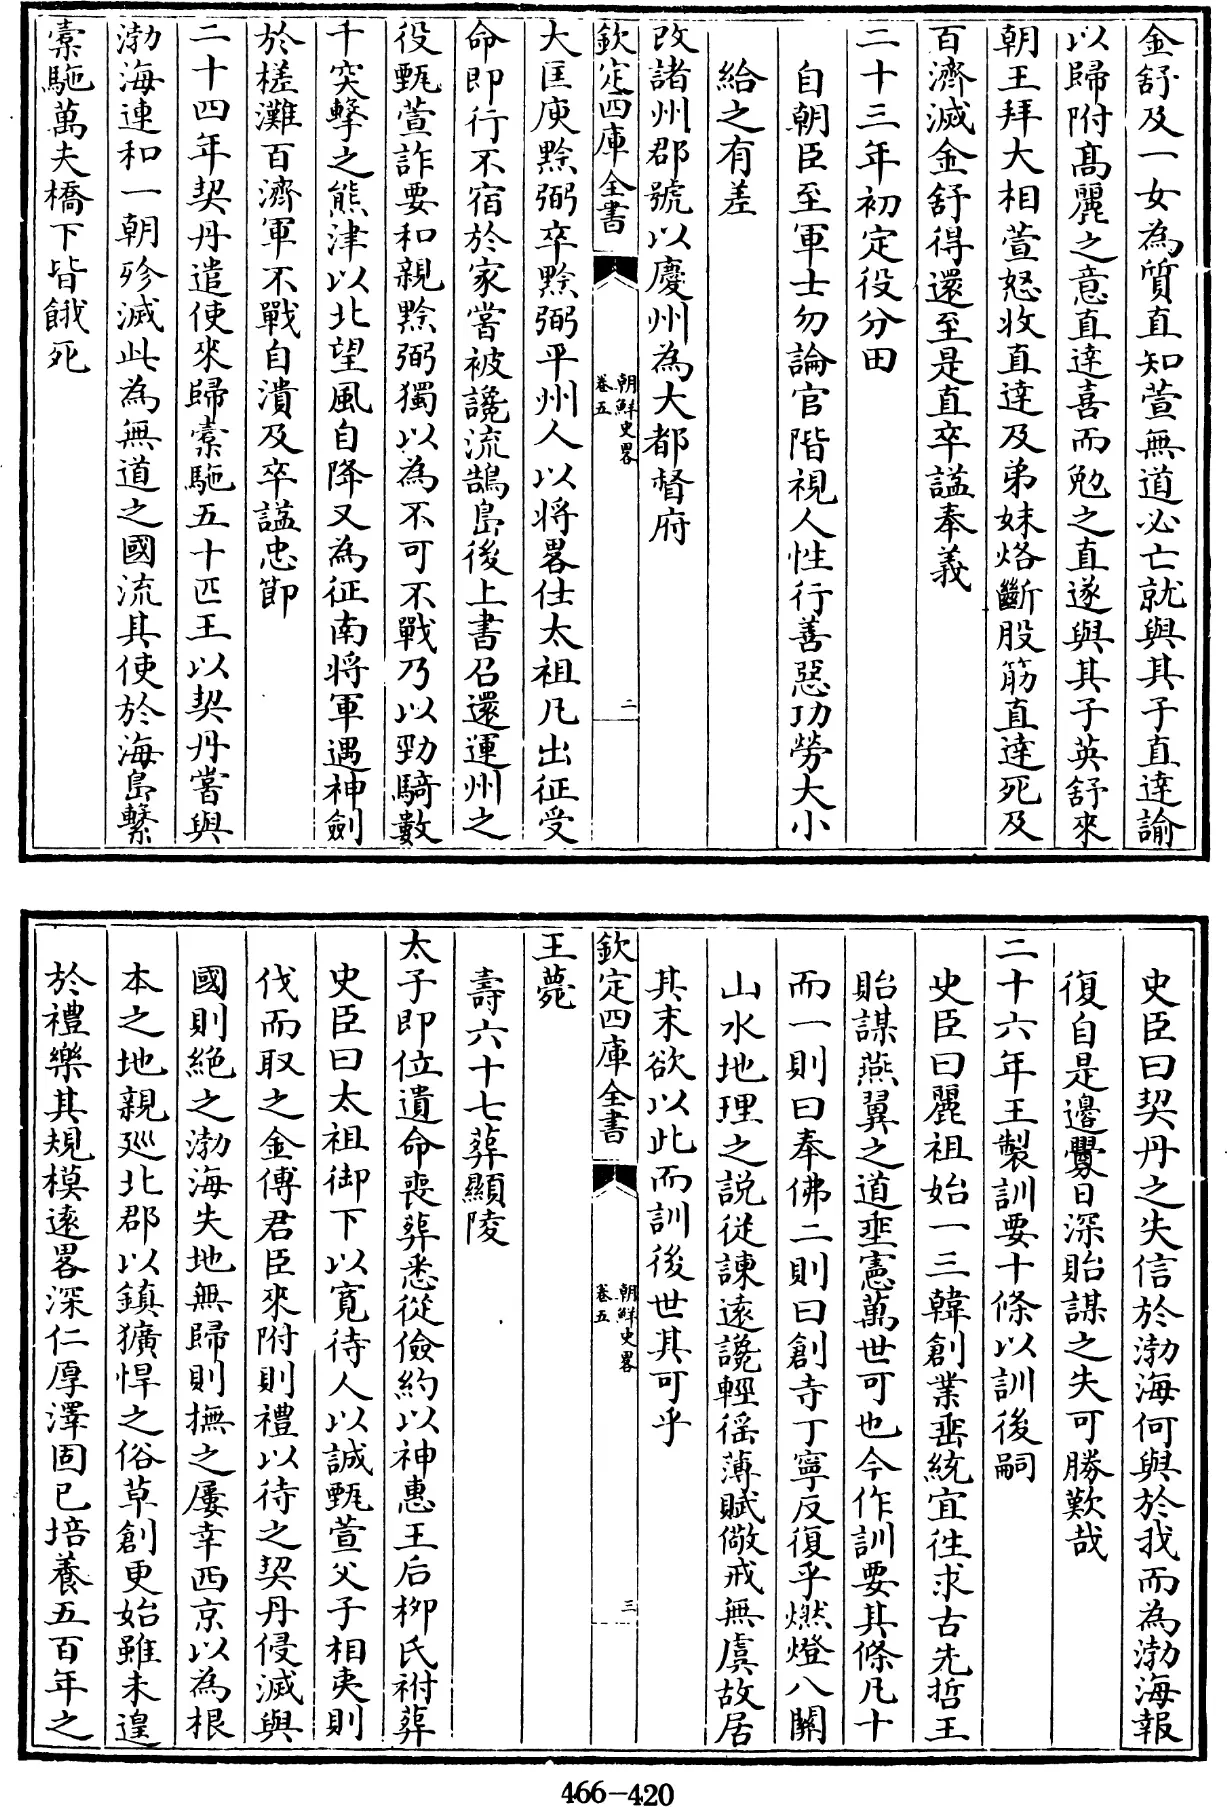 金舒及一女為質直知萱無道必亡就與其子直達諭
以歸附髙麗之意直達喜而勉之直遂與其子英舒來
朝王拜大相萱怒收直達及弟妹烙斷股筋直達死及
百濟滅金舒得還至是直卒諡奉義
二十三年初定役分田
自朝臣至軍士勿論官階視人性行善惡功勞大小
給之有差
改諸州郡號以慶州為大都督府
欽定四庫全書
朝鮮史畧
卷五
二
大匡庾黔弼卒黔弼平州人以将畧仕太祖凡出征受
命即行不宿於家嘗被讒流鵠島後上書召還運州之
役甄萱詐要和親黔弼獨以為不可不戰乃以勁騎數
千突擊之熊津以北望風自降又為征南将軍遇神劍
於槎灘百濟軍不戰自潰及卒諡忠節
二十四年契丹遣使來歸橐駞五十匹王以契丹嘗與
渤海連和一朝殄滅此為無道之國流其使於海島繫
橐駞萬夫橋下皆餓死
史臣曰契丹之失信於渤海何與於我而為渤海報
復自是邊釁日深貽謀之失可勝歎哉
二十六年王製訓要十條以訓後嗣
史臣曰麗祖始一三韓創業垂統宜徃求古先哲王
貽謀燕翼之道垂憲萬世可也今作訓要其條凡十
而一則曰奉佛二則曰創寺丁寧反復乎燃燈八關
山水地理之説從諫遠讒輕徭薄賦儆戒無虞故居
其末欲以此而訓後世其可乎
欽定四庫全書
朝鮮史畧
卷五
三
王薨
壽六十七葬顯陵
太子即位遺命喪葬悉從儉約以神惠王后栁氏祔葬
史臣曰太祖御下以寛待人以誠甄萱父子相夷則
伐而取之金傅君臣來附則禮以待之契丹侵滅與
國則絶之渤海失地無歸則撫之屢幸西京以為根
本之地親廵北郡以鎮獷悍之俗草創更始雖未遑
於禮樂其規模逺畧深仁厚澤固已培養五百年之
466-420